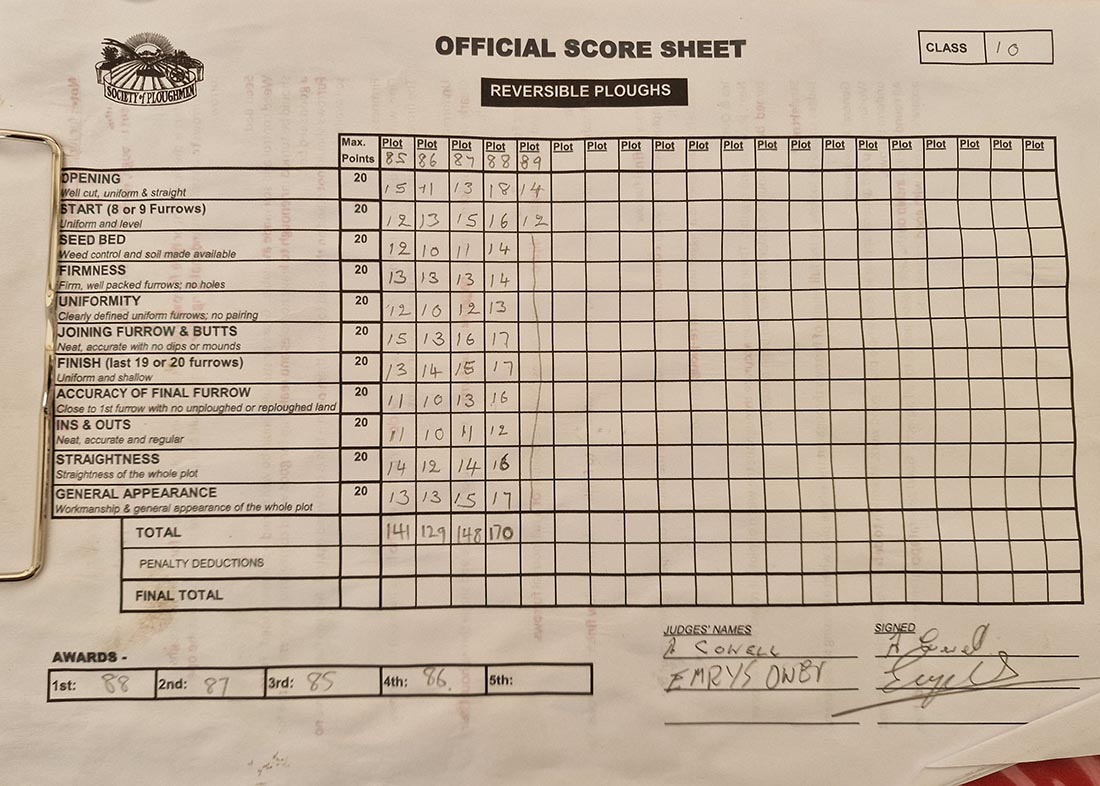 SOCIETY of PLOUGHMEN
OFFICIAL SCORE SHEET
CLASS 10
REVERSIBLE PLOUGHS
Max. Points Plot 85 Plot 86 Plot 87 Plot 88 Plot 89 Plot Plot Plot Plot Plot Plot Plot Plot Plot Plot Plot Plot Plot Plot Plot
OPENING 20 15 11 13 18 14
Well cut, uniform & straight
START (8 or 9 Furrows) 20 12 13 15 16 12
Uniform and level
SEED BED 20 12 10 11 14
Weed control and soil made available
FIRMNESS 20 13 13 13 14
Firm, well packed furrows; no holes
UNIFORMITY 20 12 10 12 13
Clearly defined uniform furrows; no pairing
JOINING FURROW & BUTTS 20 15 13 16 17
Neat, accurate with no dips or mounds
FINISH (last 19 or 20 furrows) 20 13 14 15 17
Uniform and shallow
ACCURACY OF FINAL FURROW 20 11 10 13 16
Close to 1st furrow with no unploughed or reploughed land
INS & OUTS 20 11 10 11 12
Neat, accurate and regular
STRAIGHTNESS 20 14 12 14 16
Straightness of the whole plot
GENERAL APPEARANCE 20 13 13 15 17
Workmanship & general appearance of the whole plot
TOTAL 141 129 148 170
PENALTY DEDUCTIONS
FINAL TOTAL
JUDGES' NAMES SIGNED
A COWELL
EMRYS OWEN
AWARDS -
1st: 88 2nd: 87 3rd: 85 4th: 86. 5th: